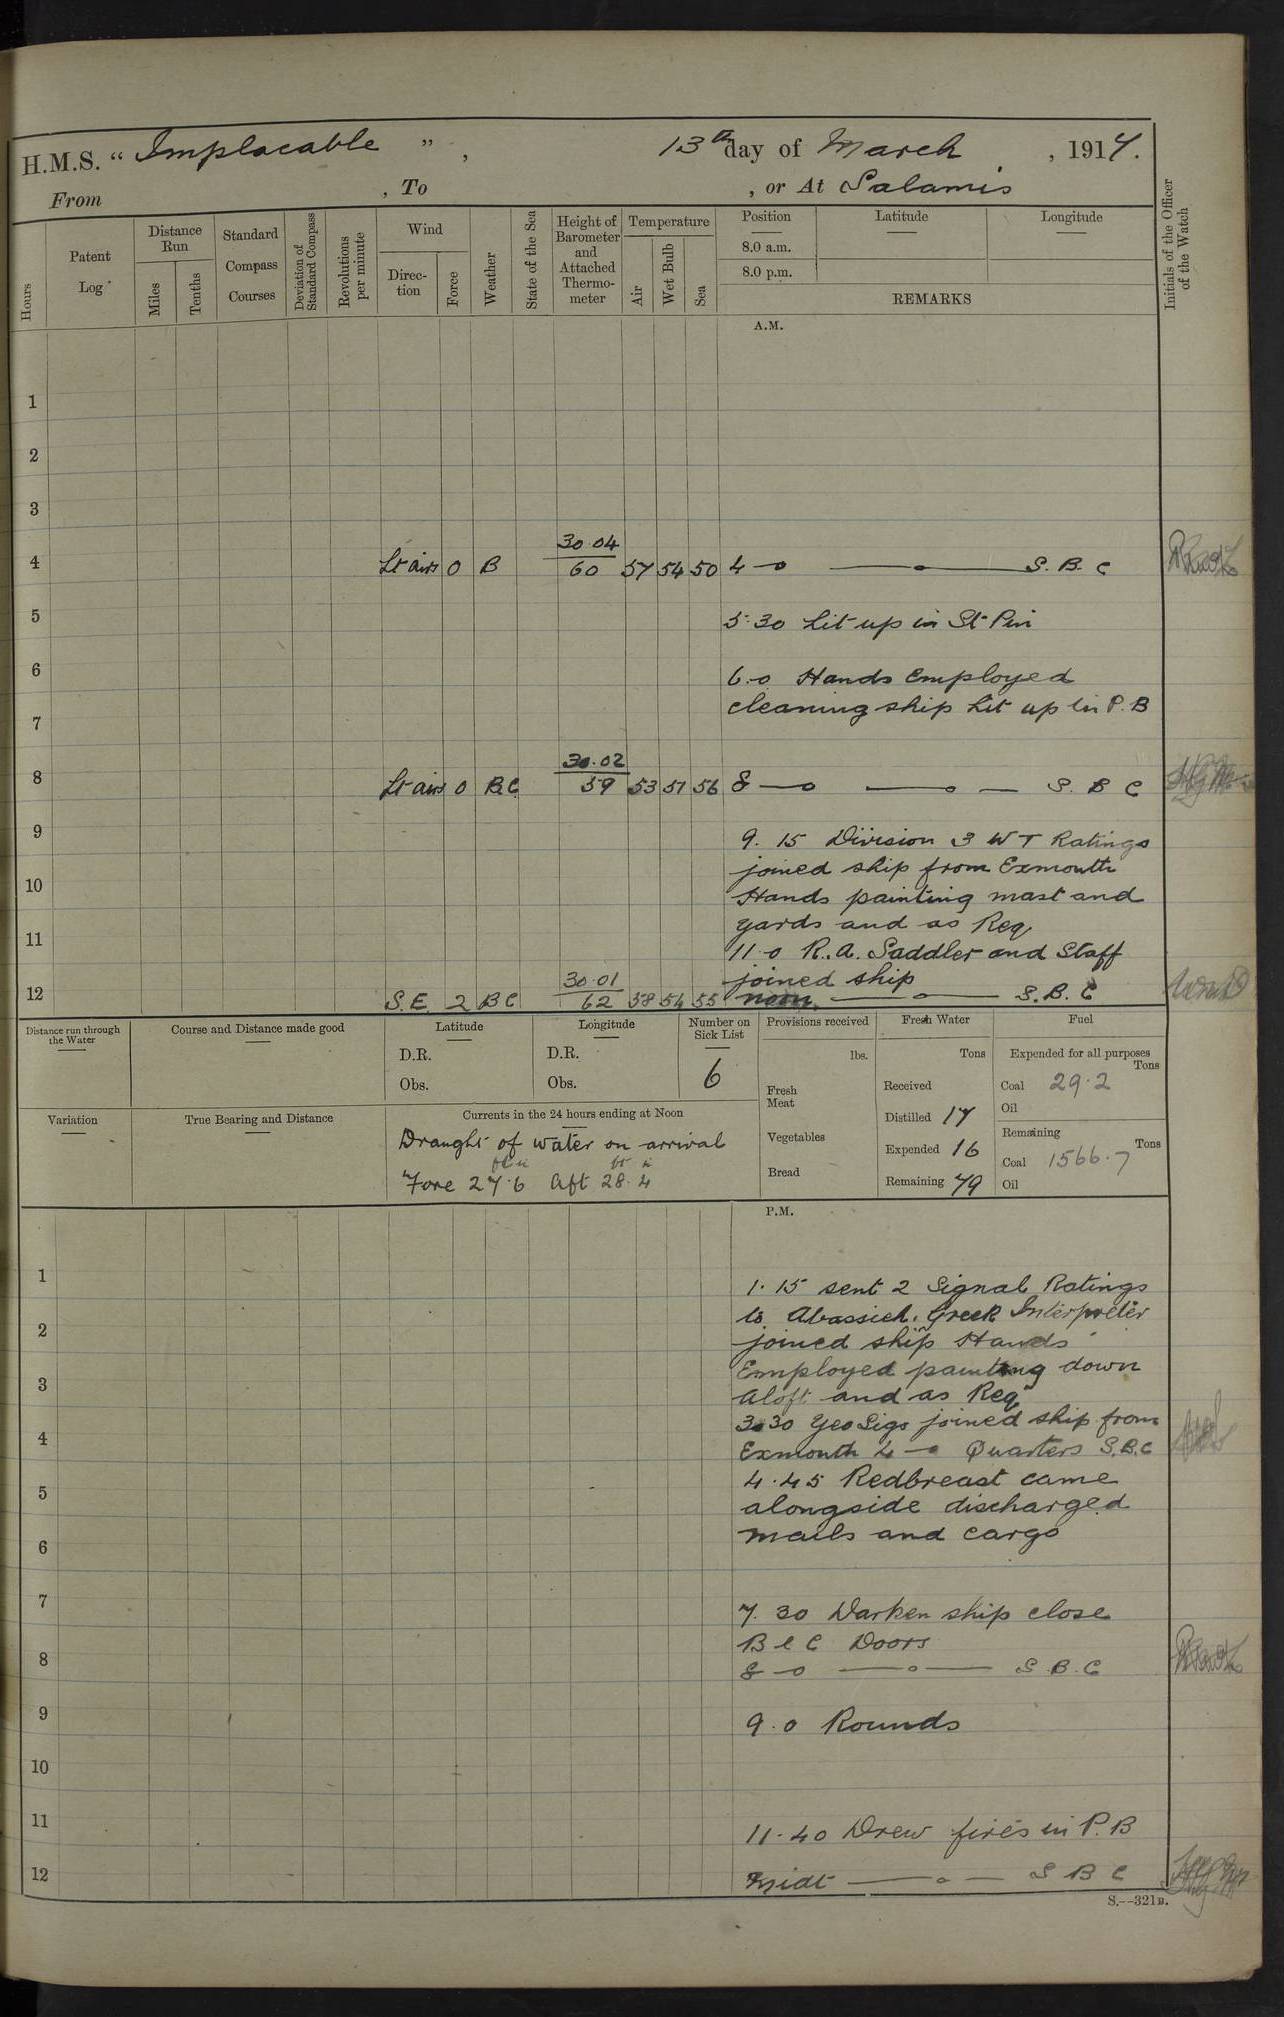 H.M.S. “ Implacable ” , 13th day of March , 1917.
From , To , or At Salamis
Hours
Patent Log
Distance Run
Miles
Tenths
Standard Compass Courses
Deviation of Standard Compass
Revolutions per minute
Wind
Direction
Force
Weather
State of the Sea
Height of Barometer and Attached Thermometer
Temperature
Air
Wet Bulb
Sea
Position
8.0 a.m.
8.0 p.m.
Latitude
Longitude
REMARKS
Initials of the Officer of the Watch
A.M.
1
2
3
30.04
4 Lt airs 0 B 60 57 54 50 4 – 0 S. B. C
5 5.30 Lit up in St Pin
6 6.0 Hands Employed
7 cleaning ship Lit up in P.B
30.02
8 Lt airs 0 B.C. 59 53 51 56 8 – 0 S. B C
9 9.15 Division 3 WT Ratings
joined ship from Exmouth
10 Hands painting mast and
yards and as Req
11 11.0 R.A. Saddler and Staff
30.01 joined ship
12 S.E. 2 BC 62 58 54 55 noon S.B.C
Distance run through the Water
Course and Distance made good
Latitude
D.R.
Obs.
Longitude
D.R.
Obs.
Number on Sick List
6
Provisions received
lbs.
Fresh Meat
Vegetables
Bread
Fresh Water
Tons
Received
Distilled 17
Expended 16
Remaining 79
Fuel
Expended for all purposes
Tons
Coal 29.2
Oil
Remaining
Tons
Coal 1566.7
Oil
Variation
True Bearing and Distance
Currents in the 24 hours ending at Noon
Draught of water on arrival
ft in ft in
Fore 27.6 Aft 28.4
P.M.
1 1.15 sent 2 Signal Ratings
2 to Abassieh. Greek Interpreter
joined ship Hands
3 Employed painting down
Aloft and as Req
3.30 Yeo Sigs joined ship from
4 Exmouth 4 – 0 Quarters S.B.C
5 4.45 Redbreast came
alongside discharged
6 mails and cargo
7 7.30 Darken ship close
B & C Doors
8 8 – 0 S.B.C
9 9.0 Rounds
10
11 11.40 Drew fires in P.B
12 Midt S B C
S.--321B.